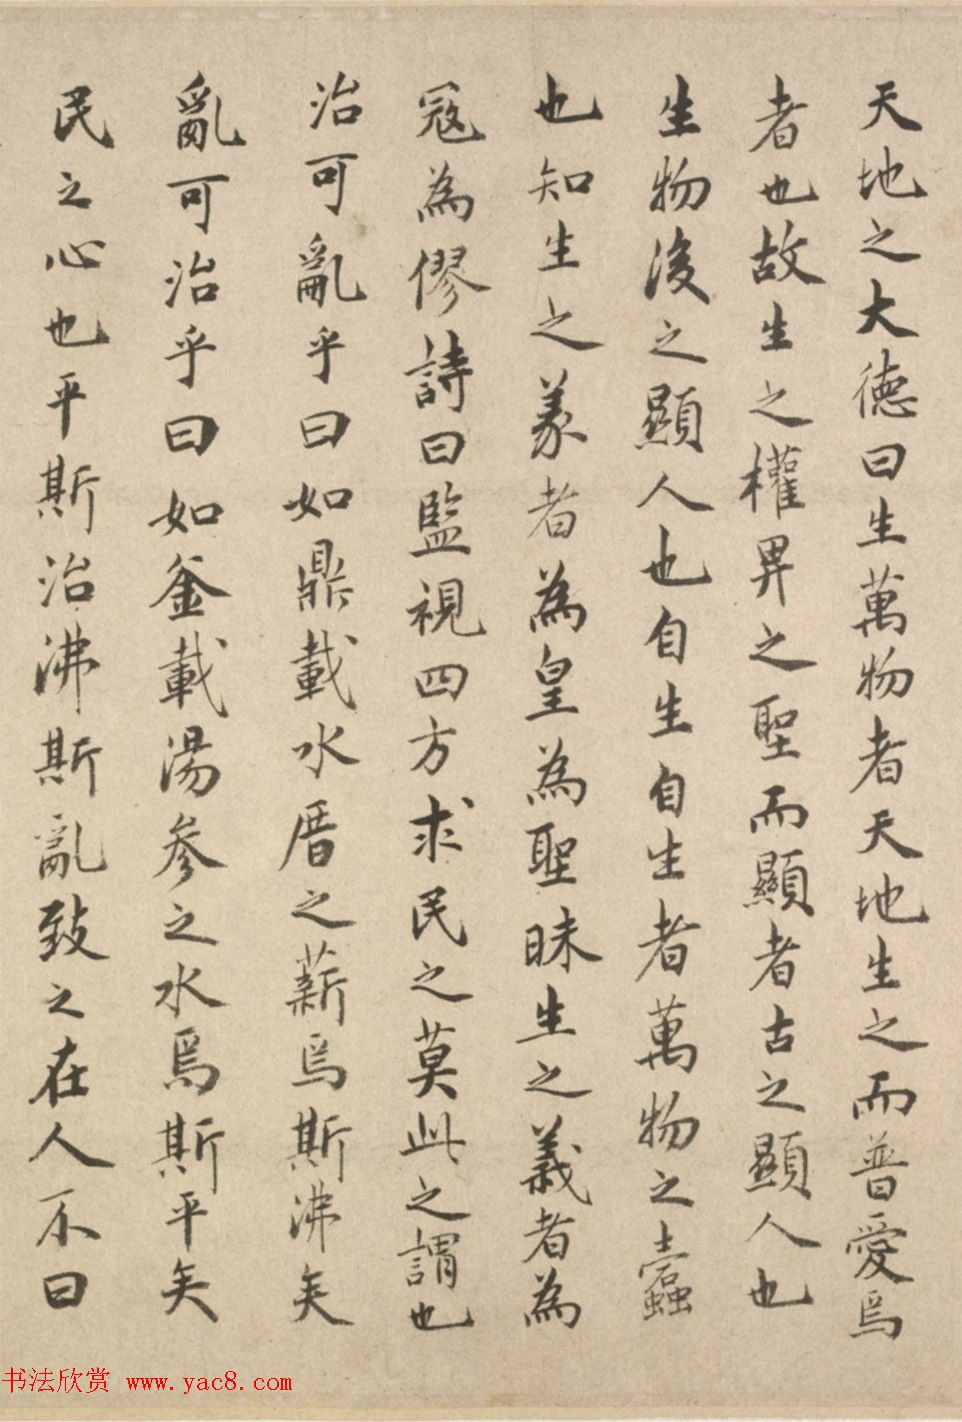 天地之大德曰生萬物者天地生之而普愛焉
者也故生之權畀之聖而顯者古之顯人也
生物後之顯人也自生自生者萬物之蠹
也知生之義者為皇為聖昧生之義者為
寇為僇詩曰監視四方求民之莫此之謂也
治可亂乎曰如鼎載水厝之薪焉斯沸矣
亂可治乎曰如釜載湯參之水焉斯平矣
民之心也平斯治沸斯亂致之在人不曰
书法欣赏 www.yac8.com